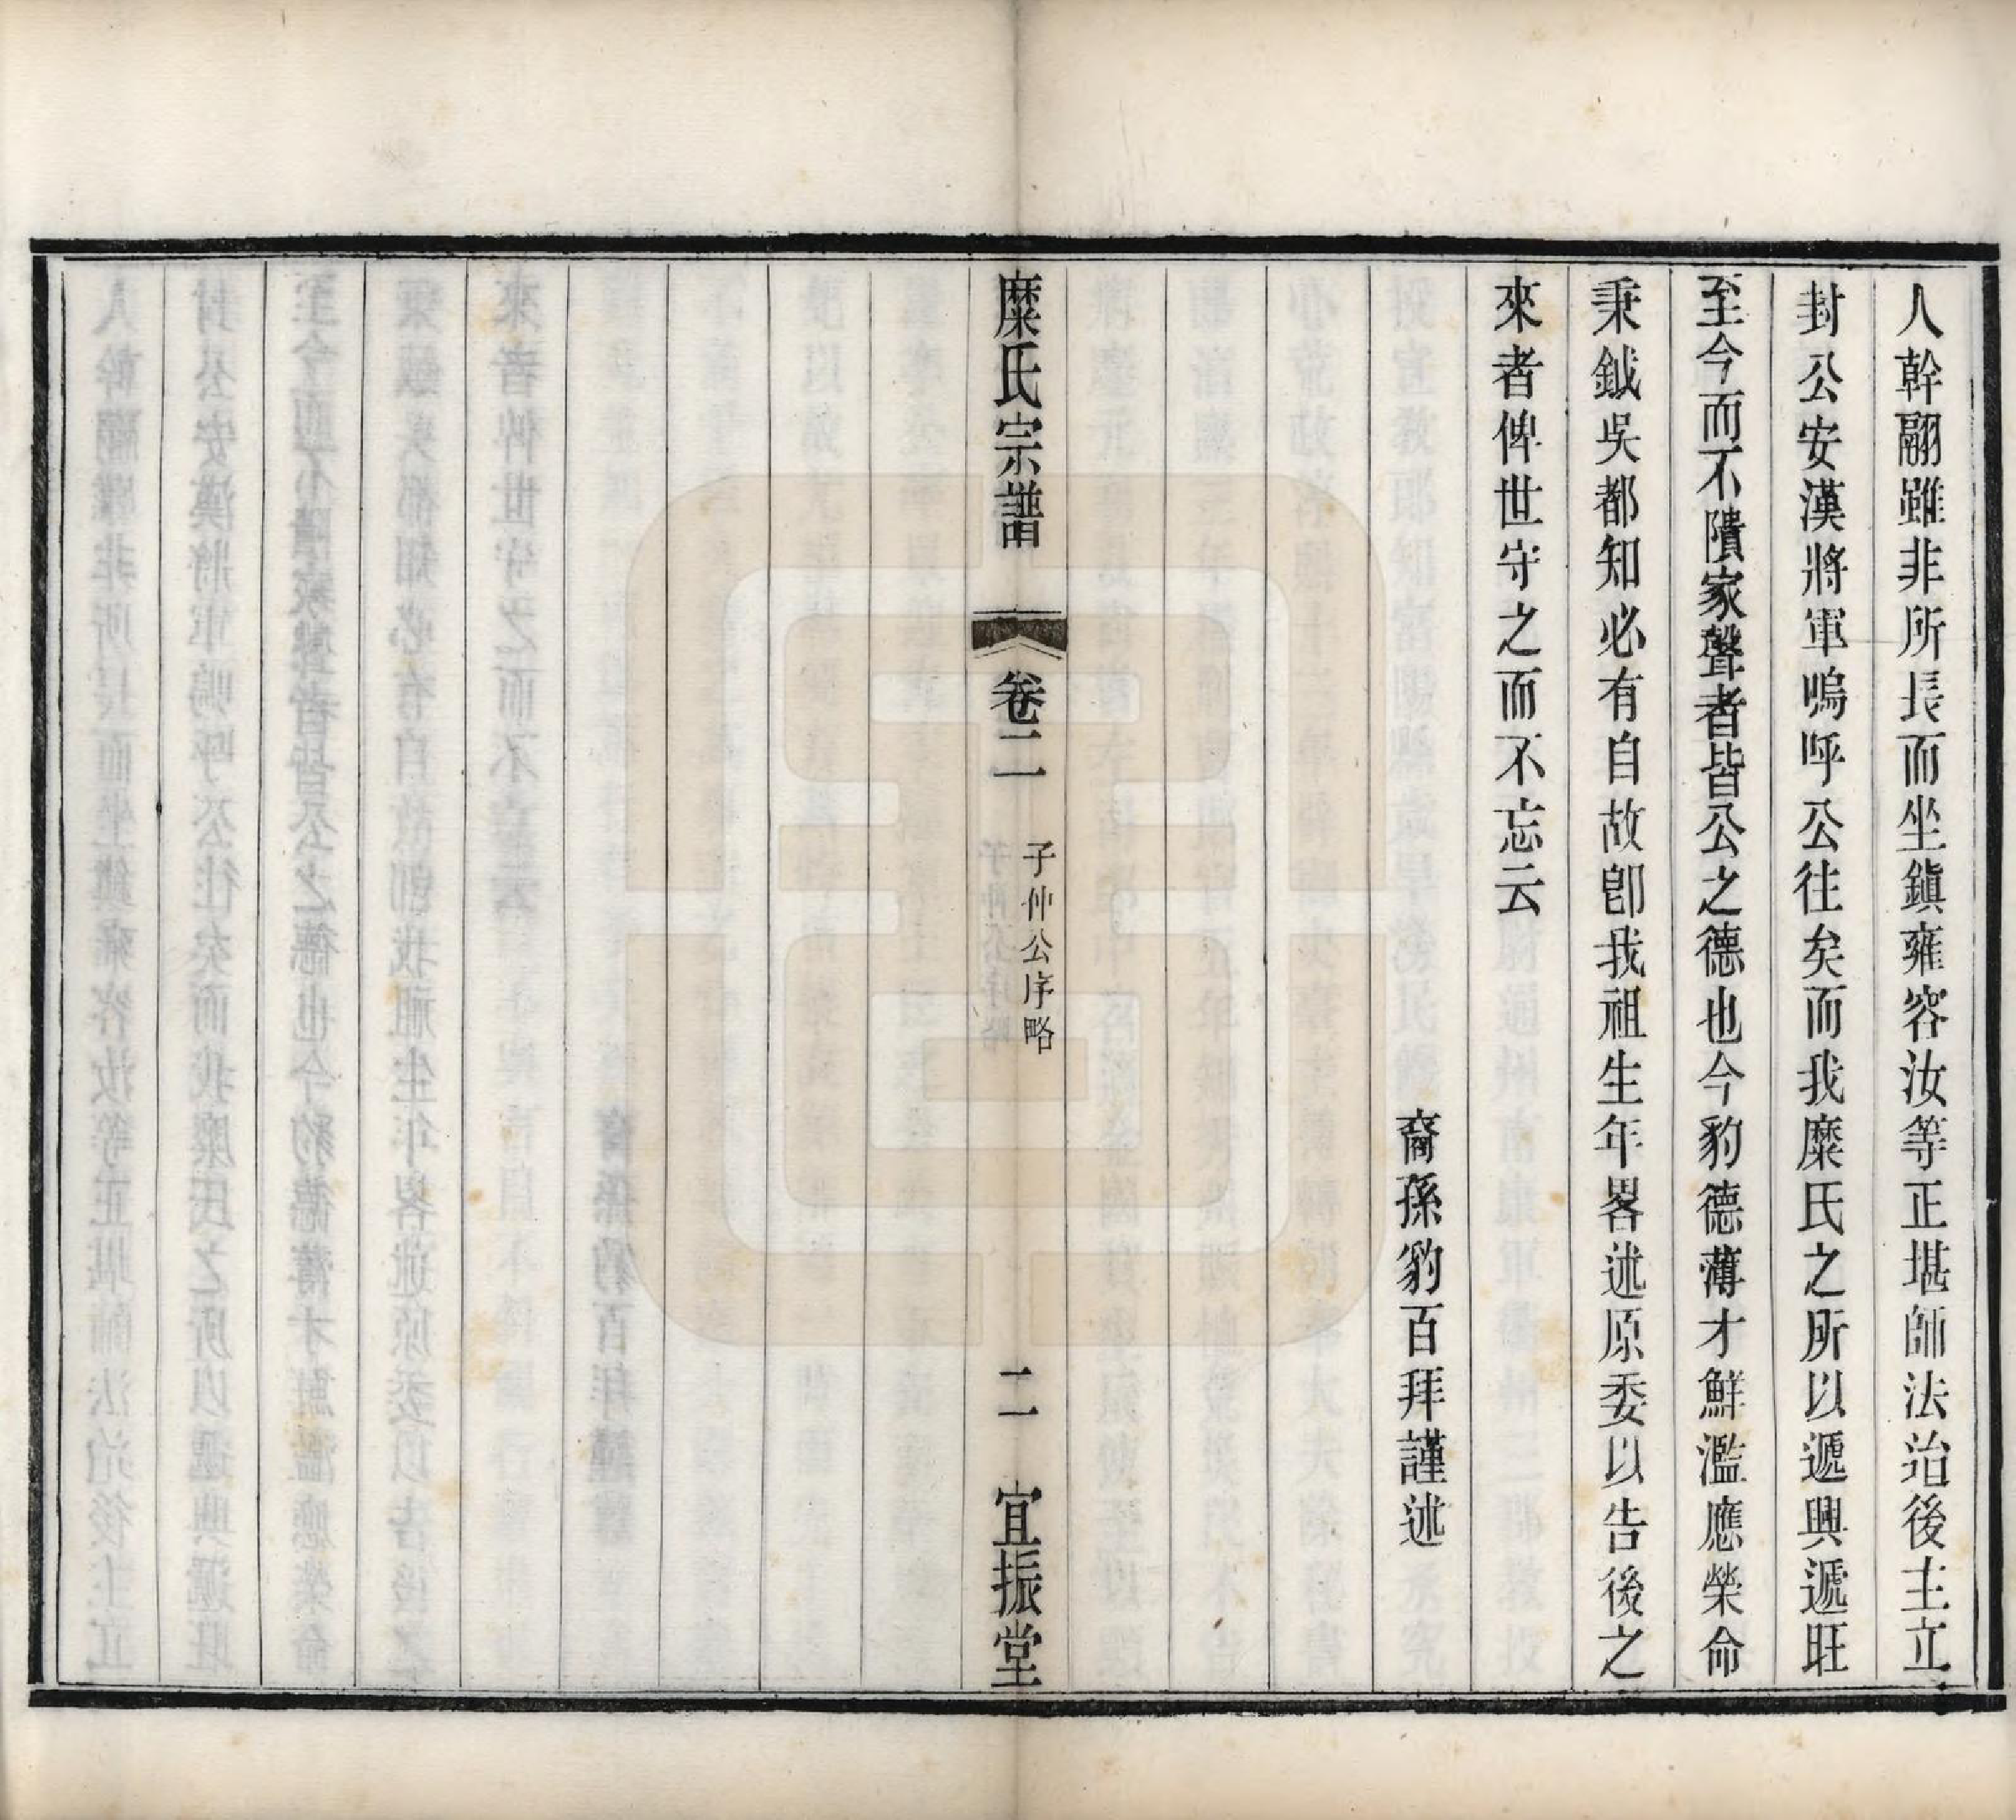 人幹翮雖非所長而坐鎭雍容汝等正堪師法治後主立
封公安漢將軍嗚呼公往矣而我糜氏之所以遞興遞旺
至今而不隤家聲者皆公之德也今豹德薄才鮮濫應榮命
秉鉞吳都知必有自故卽我祖生年畧述原委以告後之
來者俾世守之而不忘云
裔孫豹百拜謹述
糜氏宗譜
卷二
子仲公序略
二
宜振堂